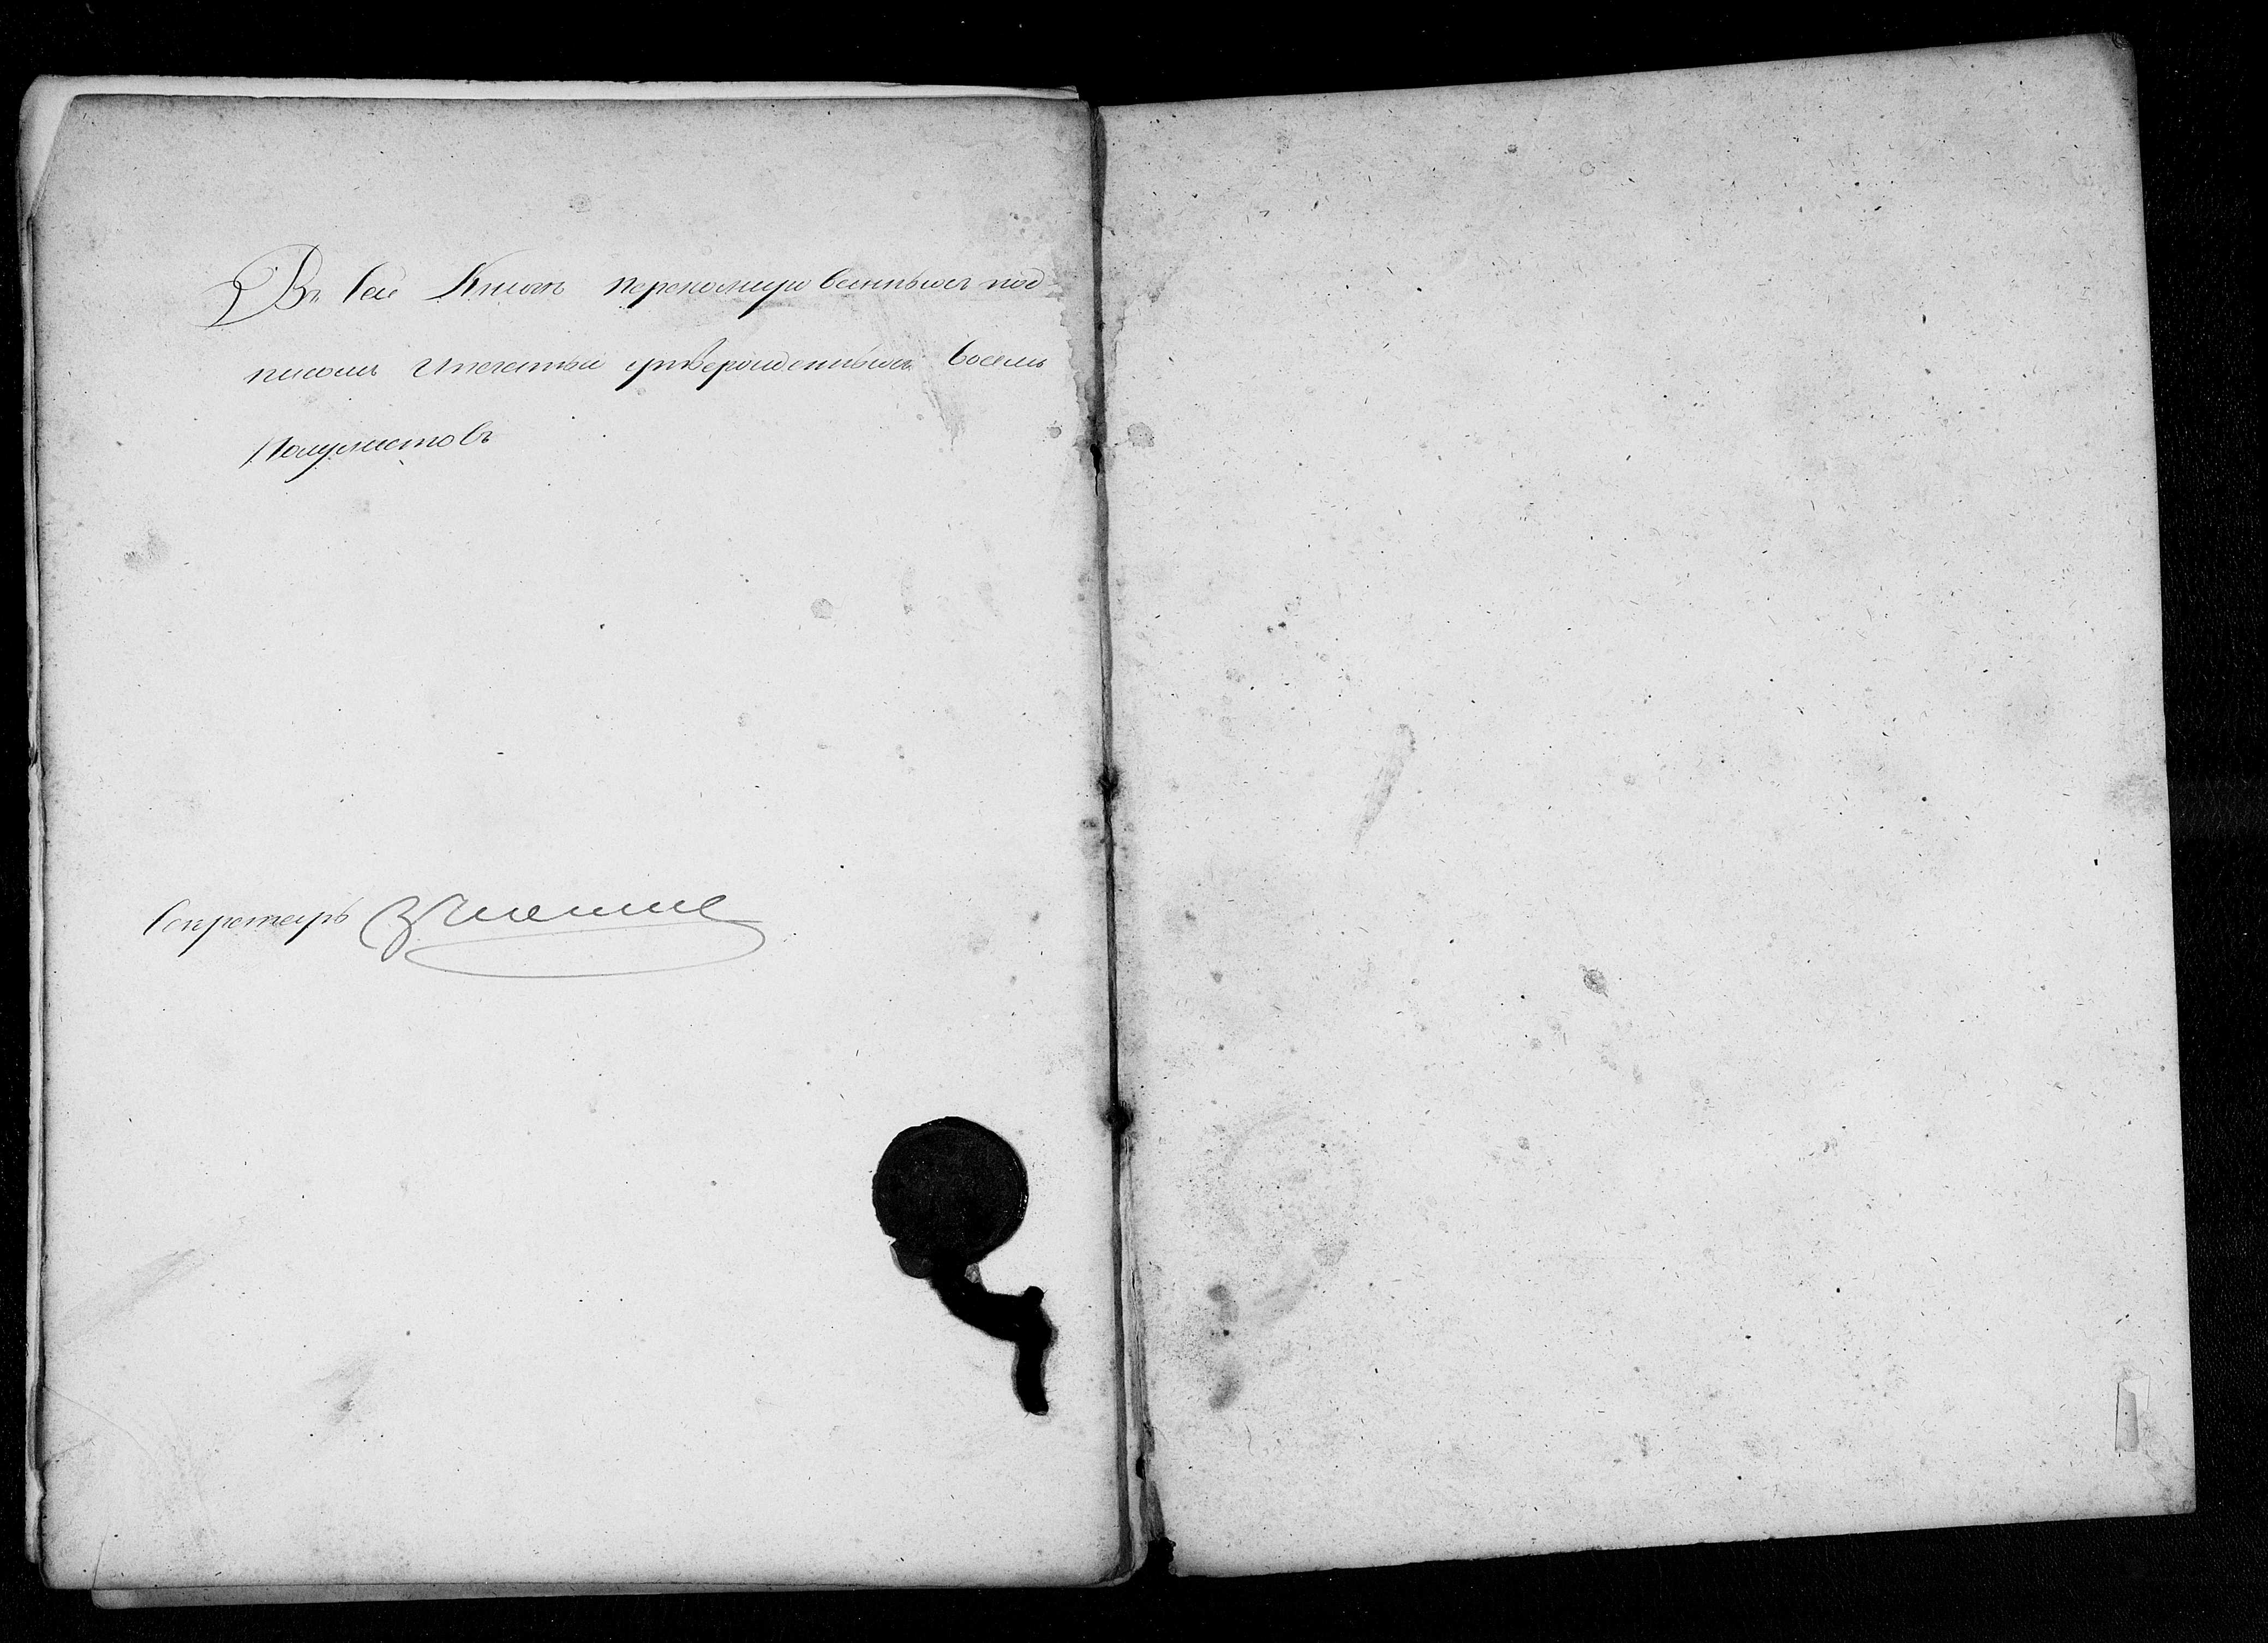 Въ сей Книгѣ перенумерованныхъ под
писомъ и печатью утвержденныхъ восемь
полулистовъ
Секретарь